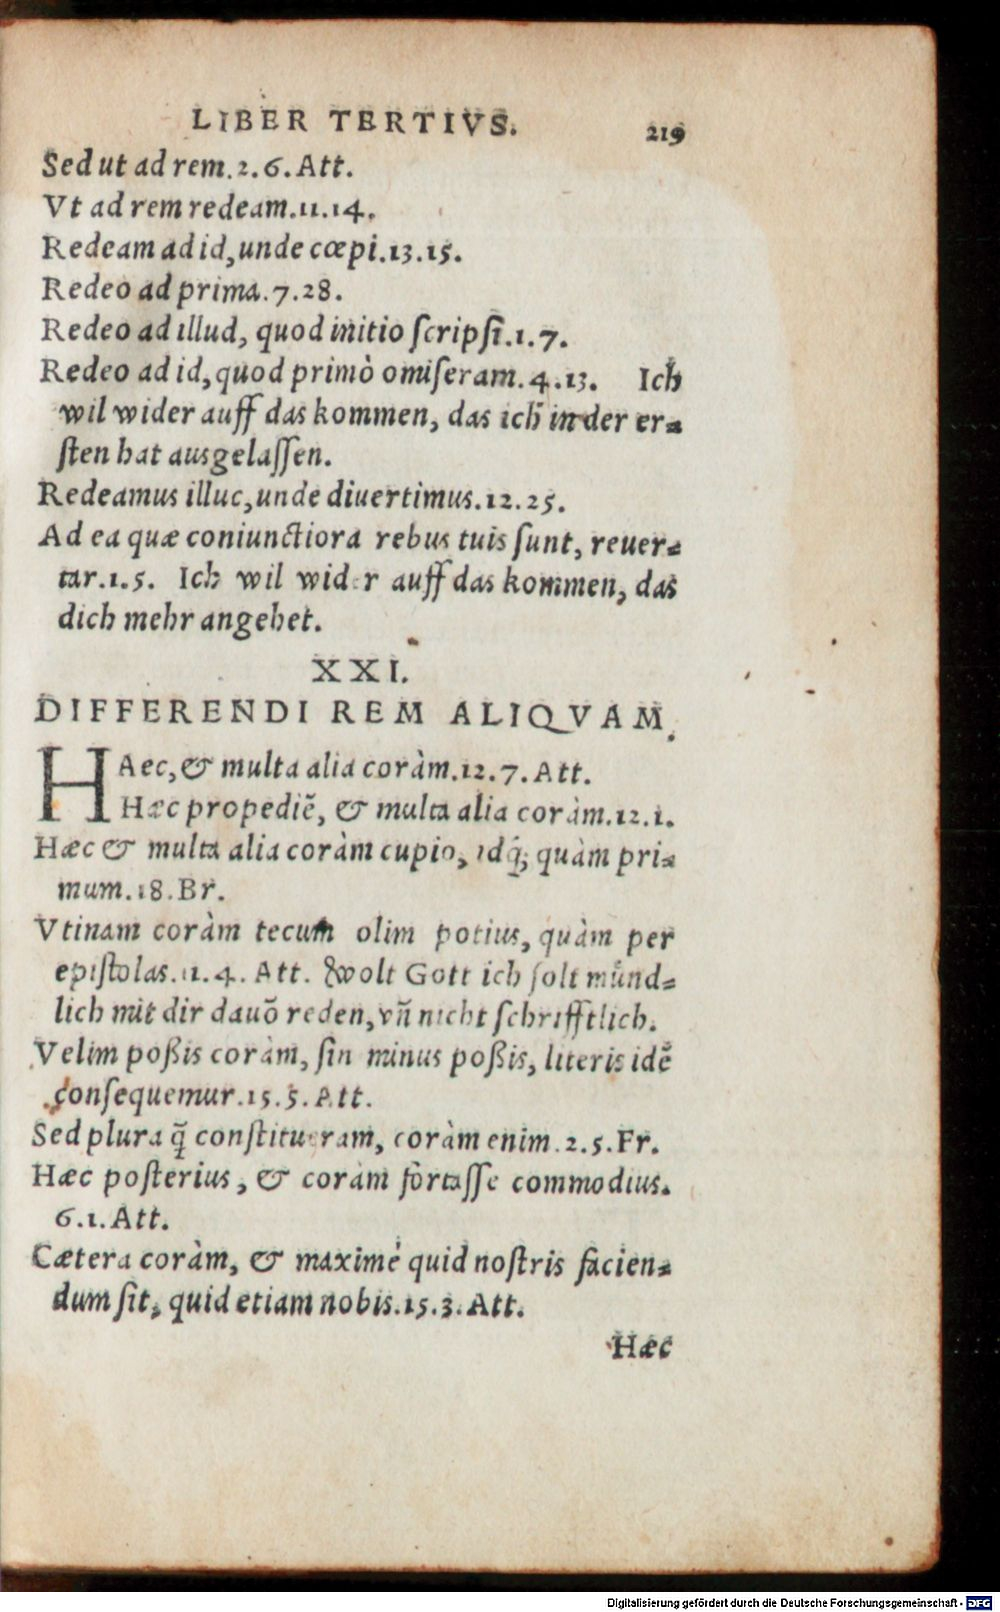 LIBER TERTIVS. 219
Sed ut ad rem.2.6.Att.
Vt ad rem redeam.11.14.
Redeam ad id, unde cœpi.13.15.
Redeo ad prima.7.28.
Redeo ad illud, quod initio ſcripſi.1.7.
Redeo ad id, quod primò omiſeram.4.13. Ich
wil wider auff das kommen, das ich in der er⸗
ſten hat ausgelaſſen.
Redeamus illuc, unde diuertimus.12.25.
Ad ea quæ coniunctiora rebus tuis ſunt, reuer⸗
tar.1.5. Ich wil wider auff das kommen, das
dich mehr angehet.
XXI.
DIFFERENDI REM ALIQVAM.
HAec, & multa alia coràm.12.7.Att.
Hæc propediẽ, & multa alia coràm.12.1.
Hæc & multa alia coràm cupio, idq́; quàm pri⸗
mum.18.Br.
Vtinam coràm tecum olim potius, quàm per
epiſtolas.11.4.Att. Wolt Gott ich ſolt můnd⸗
lich mit dir dauõ reden, vñ nicht ſchrifftlich.
Velim poßis coràm, ſin minus poßis, literis idẽ
conſequemur.15.5.Att.
Sed plura q̃ conſtitueram, coràm enim.2.5.Fr.
Hæc poſterius, & coràm fortaſſe commodius.
6.1.Att.
Cætera coràm, & maximè quid noſtris facien⸗
dum ſit, quid etiam nobis.15.3.Att.
Hæc
Digitalisierung gefördert durch die Deutsche Forschungsgemeinschaft - DFG